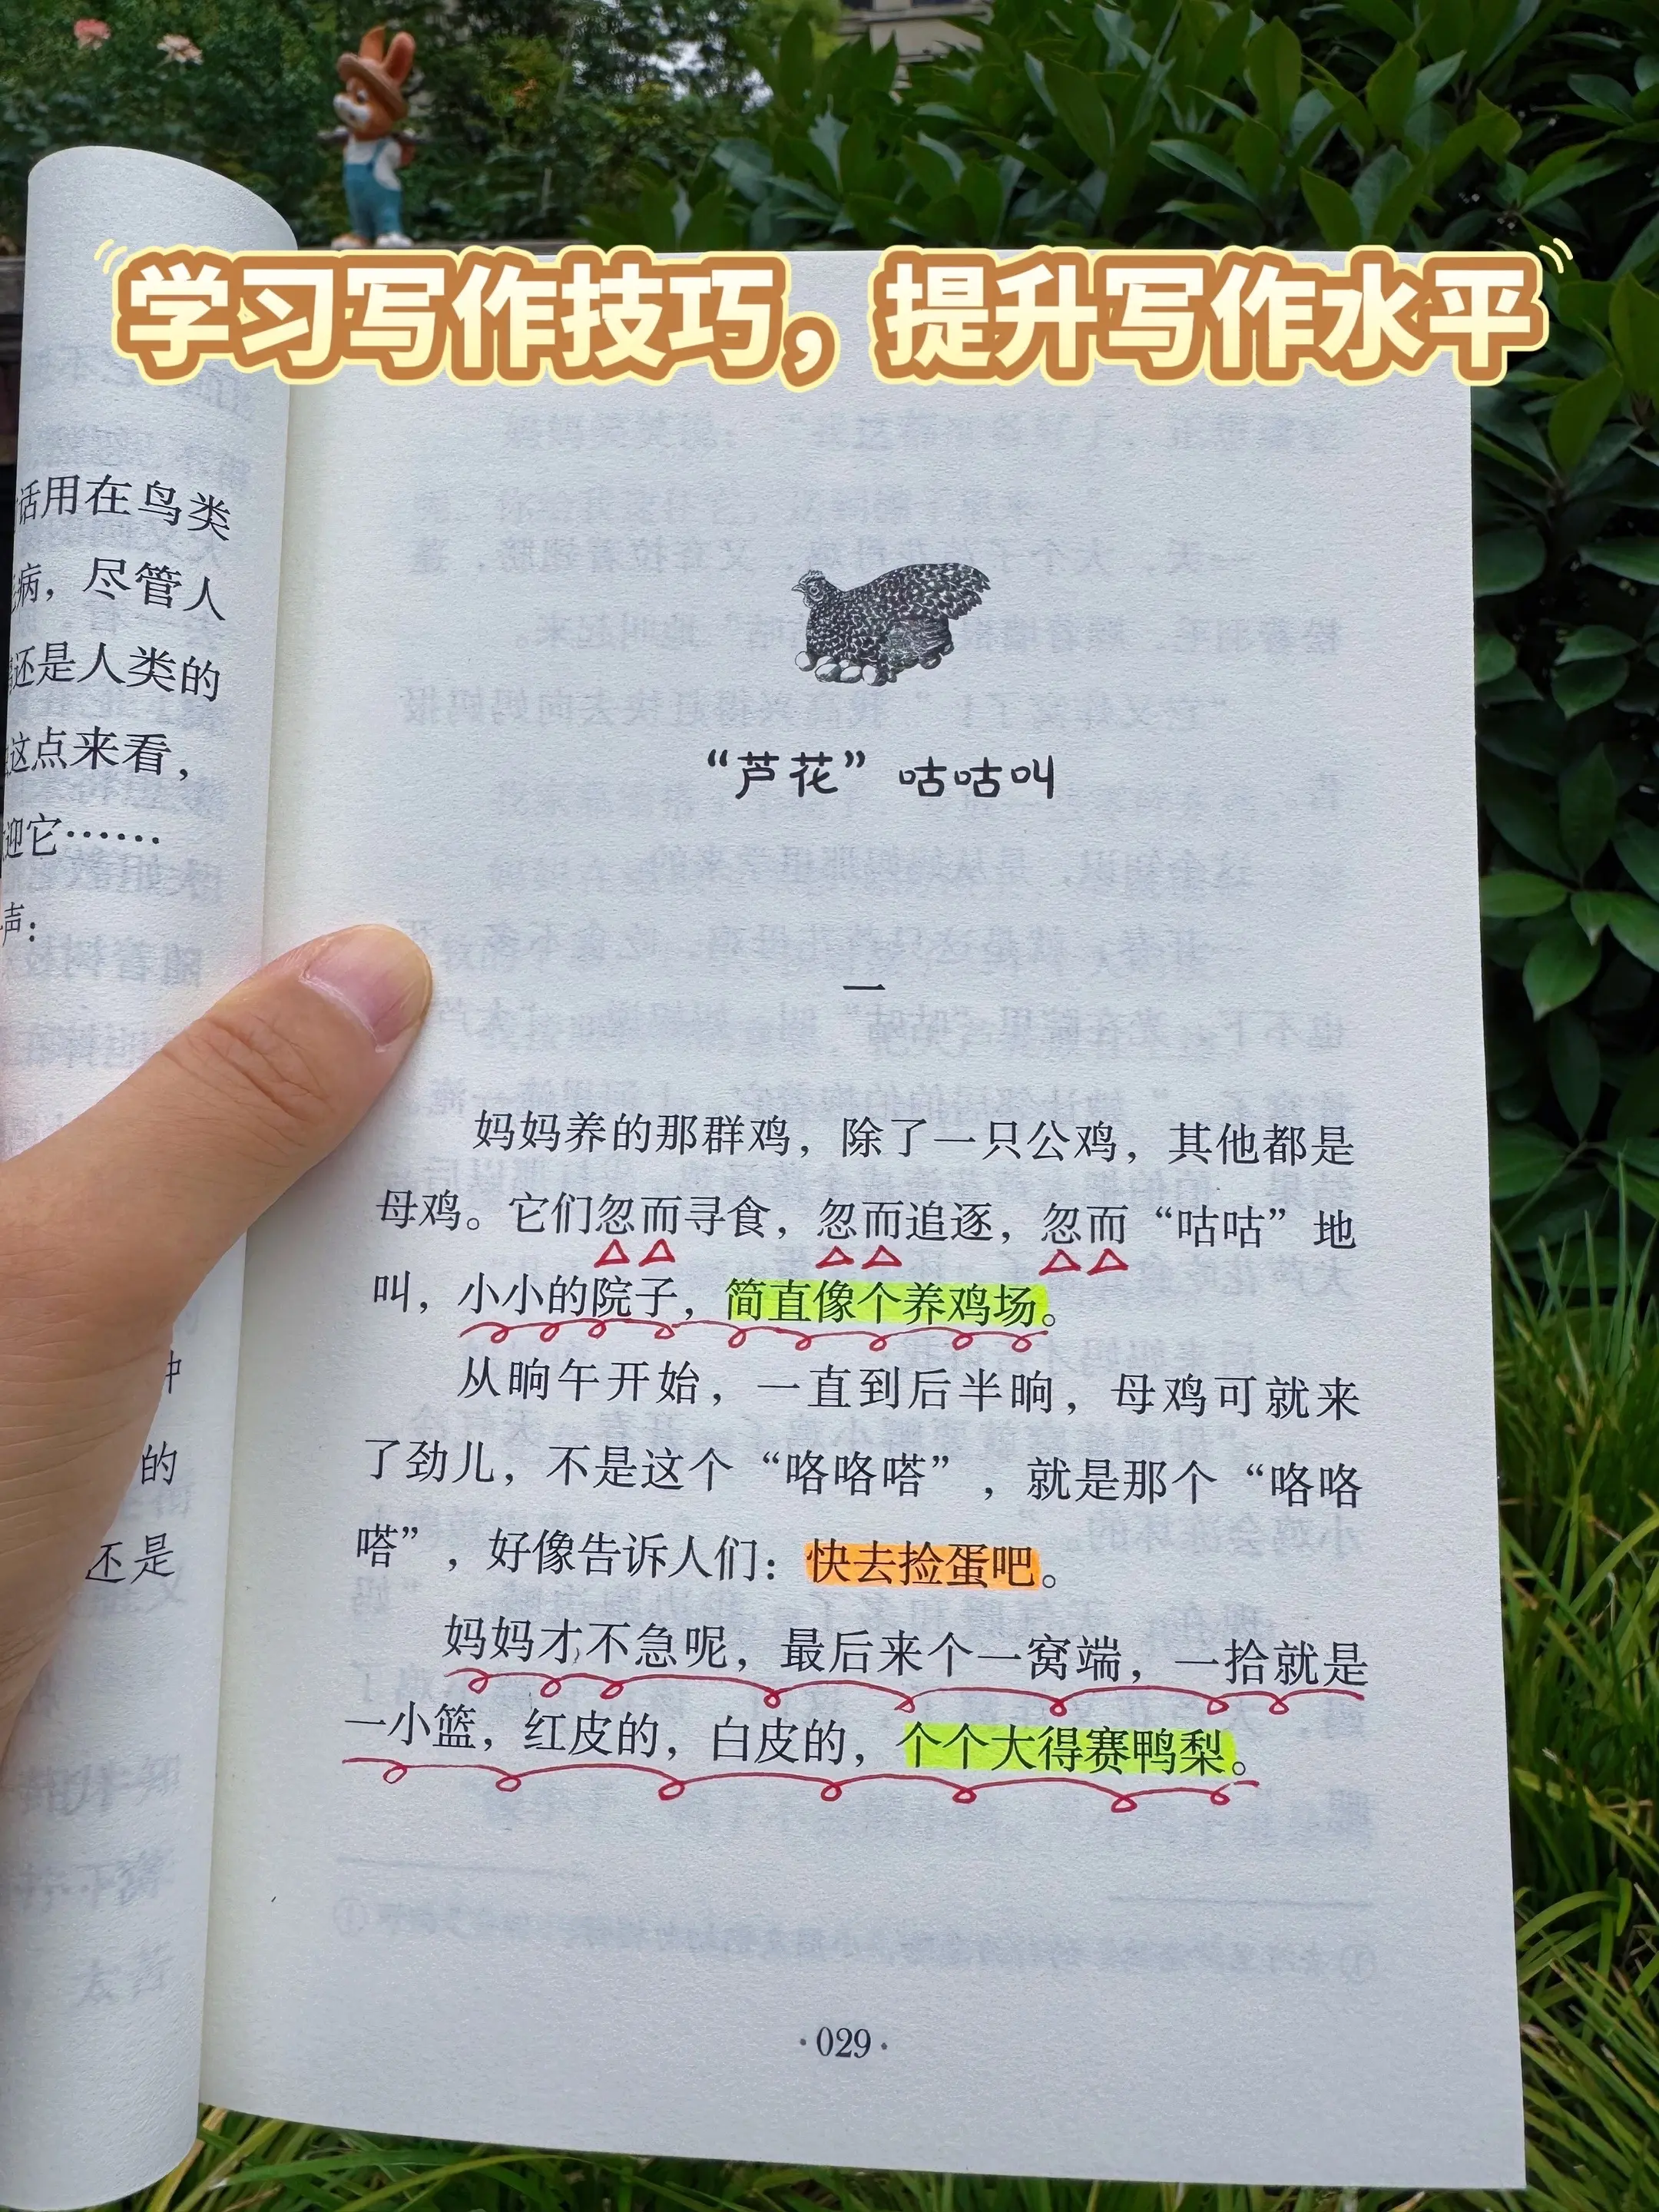 学习写作技巧，提升写作水平
话用在鸟类
病，尽管人
还是人类的
这点来看，
迎它……
声：
的
还是
“芦花”咕咕叫
一
妈妈养的那群鸡，除了一只公鸡，其他都是
母鸡。它们忽而寻食，忽而追逐，忽而“咕咕”地
叫，小小的院子，简直像个养鸡场。
从晌午开始，一直到后半晌，母鸡可就来
了劲儿，不是这个“咯咯嗒”，就是那个“咯咯
嗒”，好像告诉人们：快去捡蛋吧。
妈妈才不急呢，最后来个一窝端，一拾就是
一小篮，红皮的，白皮的，个个大得赛鸭梨。
·029·